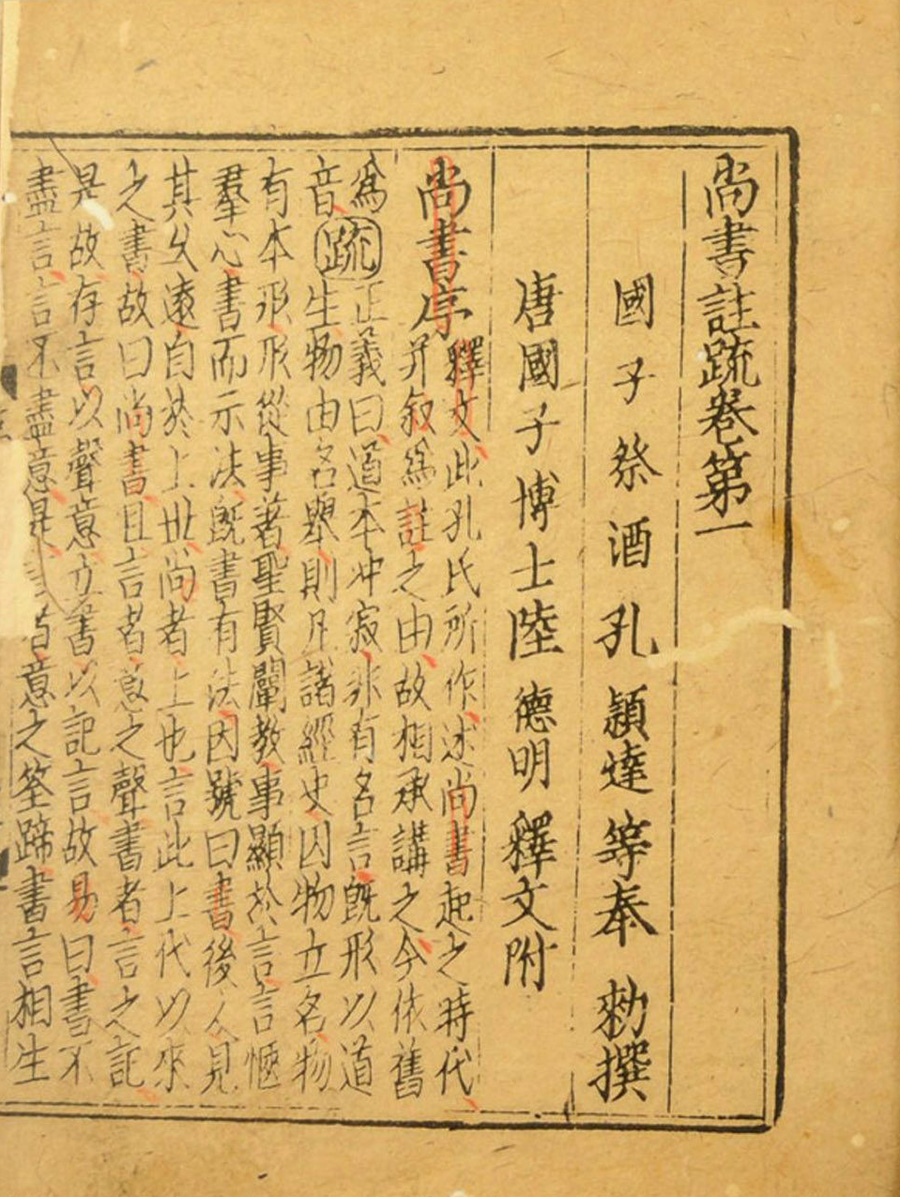 尚書註疏卷第一
國子祭酒孔穎達等奉勑撰
唐國子博士陸德明釋文附
尚書序
釋文此孔氏所作述尚書起之時代
并叙為註之由故相承講之今依舊
為疏正義曰道本冲寂非有名言旣形以道
音生物由名舉則凡諸經史因物立名物
有本形形從事著聖賢闡教事顯於言言愜
羣心書而示法旣書有法因號曰書後人見
其久遠自於上世尚者上也言此上代以來
之書故曰尚書且言者意之聲書者言之記
是故存言以聲意立書以記言故易曰書不
盡言言不盡意是言者意之筌蹄書言相生